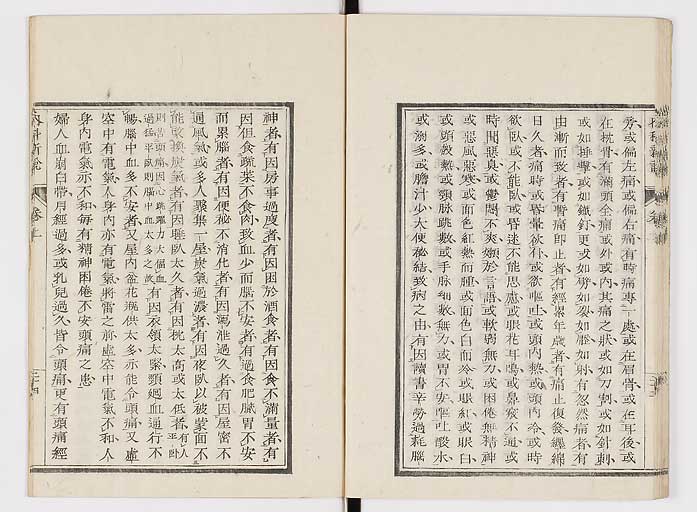 旁、或偏左痛、或偏右痛、有時痛專一處、或在眉骨、或在耳後、或
在枕骨、有滿頭全痛、或外或內、其痛之狀、或如刀割、或如針刺、
或如捶擊、或如鐵釘、更或如劈、如裂、如壓、如射、有忽然痛者、有
由漸而致者、有暫痛即止者、有經累年歲者、有痛止復發、纏綿
日久者、痛時或昏暈欲仆、或欲嘔吐、或頭內熱、或頭內冷、或時
欲臥、或不能臥、或昏迷不能思慮、或眼花耳鳴、或鼻竅不通、或
時聞惡臭、或鬱悶不爽、懶於言語、或軟弱無力、或困倦無精神、
或惡風惡寒、或面色紅熱而腫、或面色白而冷、或眼紅、或眼白、
或頭發熱、或頸脉跳數、或手脉細數無力、或胃不安、嘔吐酸水、
或溺多、或膽汁少、大便秘結、致病之由、有因讀書辛勞過耗腦
神者、有因房事過度者、有因困於酒食者、有因食不滿量者、有
因但食蔬菜不食肉、致血少而腦不安者、有因過食肥膩、胃不安
而累腦者、有因便秘不消化者、有因瀉泄過久者、有因屋密不
通風氣、或多人聚集一屋、炭氣過濃者、有因夜臥以被蒙面、不
能改換炭氣者、有因睡臥太久者、有因枕太高或太低者、有人平臥
則苦頭痛、因心跳躍力大、偏血過猛、平臥則腦中血太多之故、有因衣領太緊、頸迴血通行不
暢、腦中血多不安者、又屋內盆花瓶供太多、亦能令頭痛、又虛
空中有電氣、人身內亦有電氣、將雷之前、虛空中電氣不和、人
身內電氣亦不和、每有精神困倦不安頭痛之患、
婦人血崩白帶、月經過多、或乳兒過久、皆令頭痛、更有頭痛經
內科新說
卷上